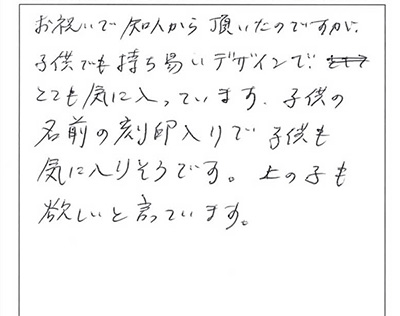 お祝いで知人から頂いたのですが、
子供でも持ち易いデザインで、
とても気に入っています。子供の
名前の刻印入りで子供も
気に入りそうです。上の子も
欲しいと言っています。